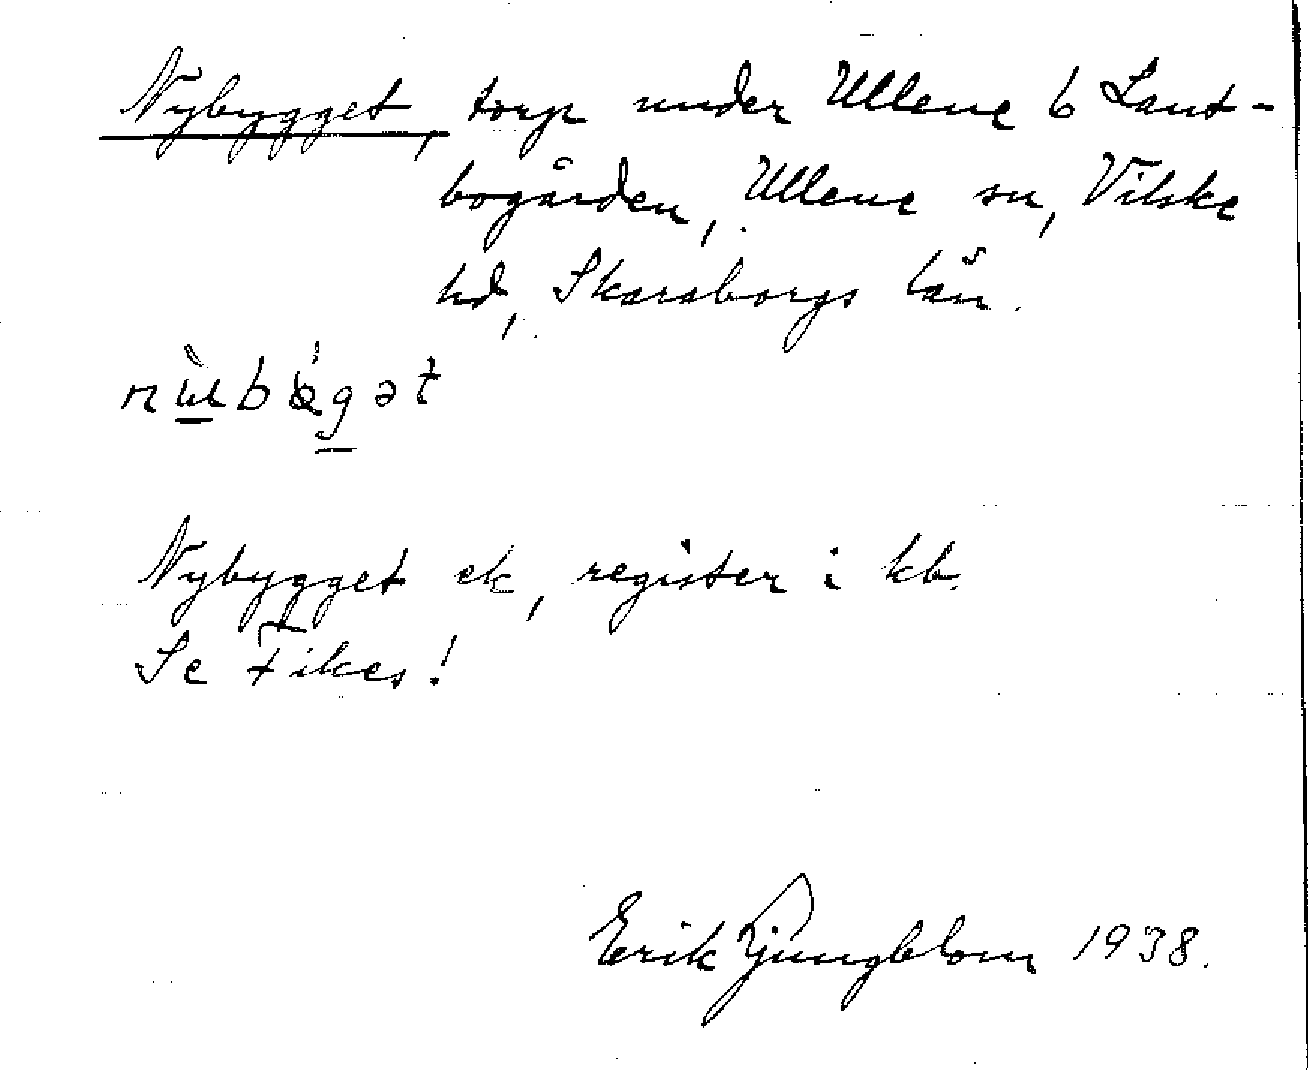 Nybygget, torp under Ullene 6 Lant-
bogården, Ullene sn, Vilske
hd, Skaraborgs län.
Nybygget ek, register i kb.
Se Fikes!
Erik Ljungblom 1938.